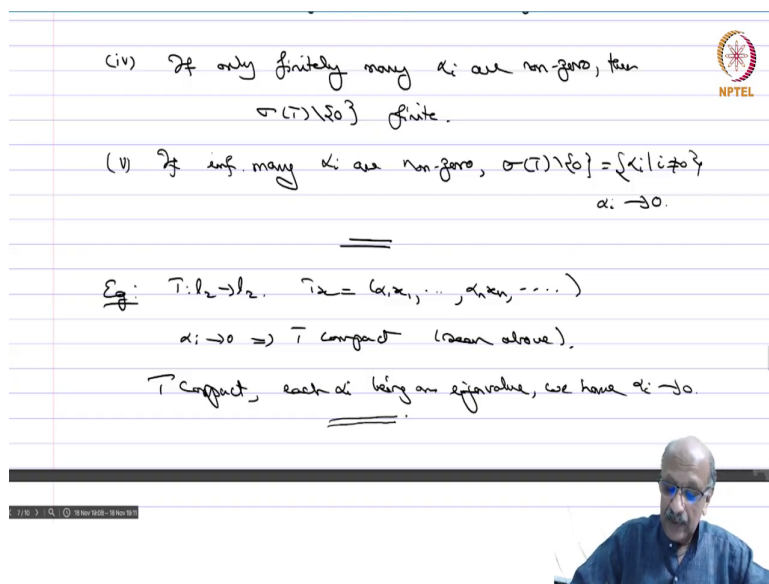 (iv) If only finitely many αi are non-zero, then
σ(T)\{0} finite.
NPTEL
(v) If inf. many αi are non-zero, σ(T)\{0} = {αi | i≠0},
αi → 0.
Eg: T: l2→l2. Tx = (α1x1, ..., αnxn, ....)
αi → 0 ⇒ T compact (seen above).
T compact, each αi being an eigenvalue, we have αi → 0.
7/10 18 Nov 19:08 – 18 Nov 19:11